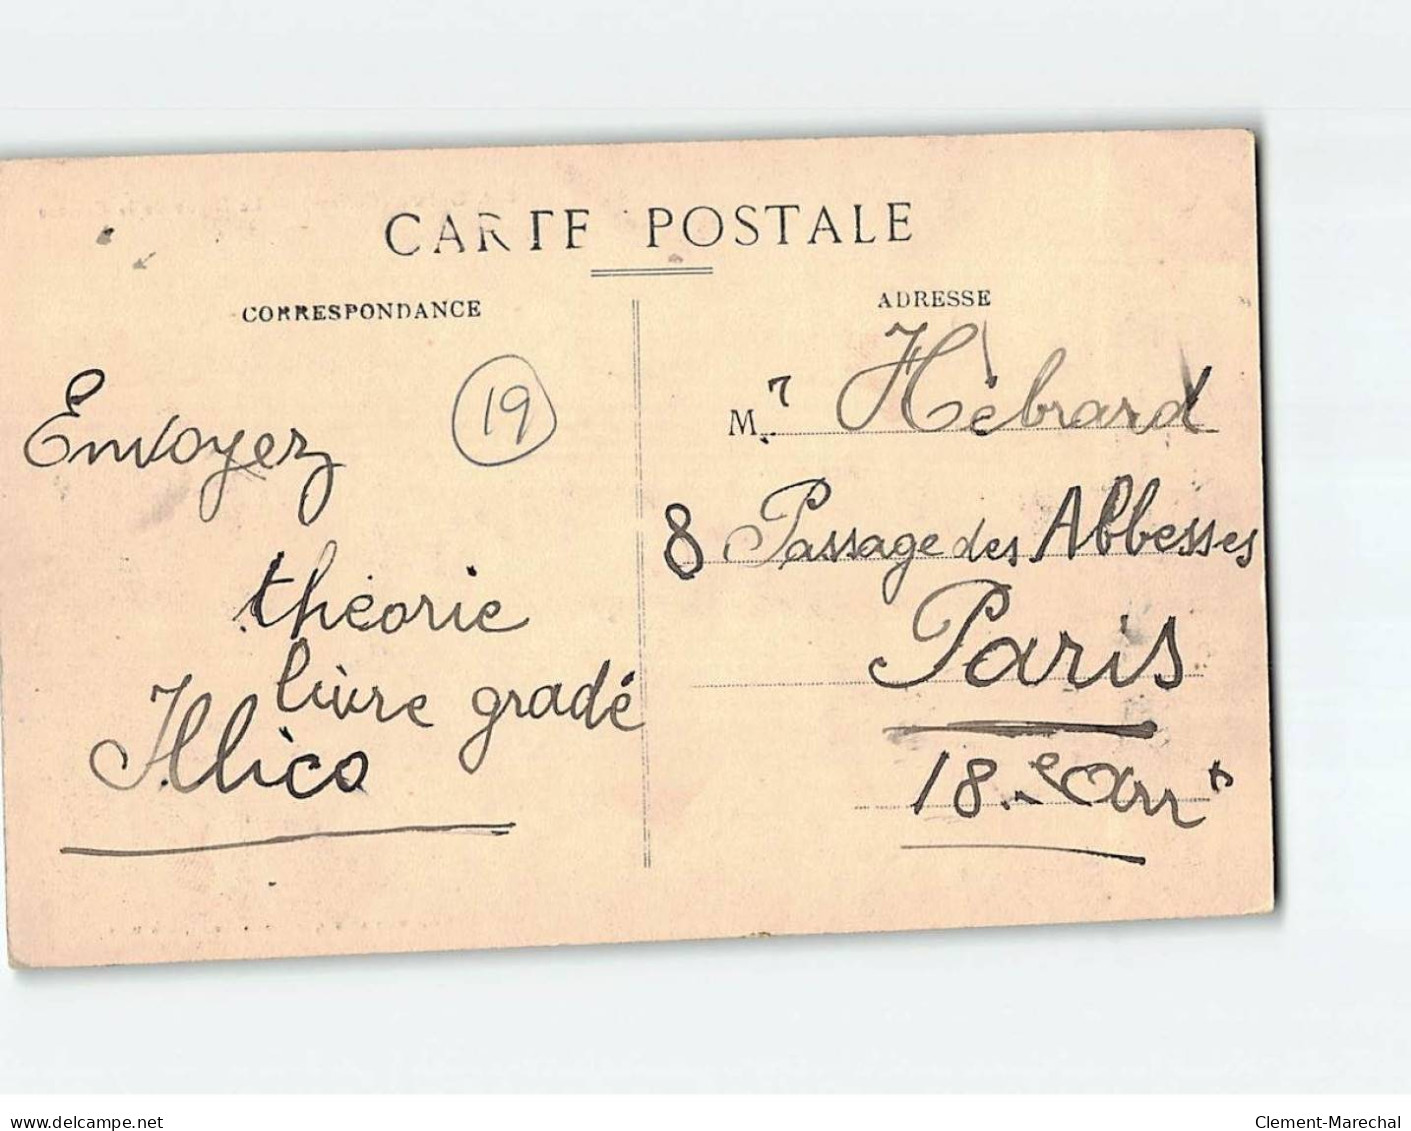 CARTE POSTALE
CORRESPONDANCE
Envoyez
19
théorie
livre gradé
Illico
ADRESSE
M. r Hébrard
8 Passage des Abbesses
Paris
18. e Arr t
www.delcampe.net
Clement-Marechal